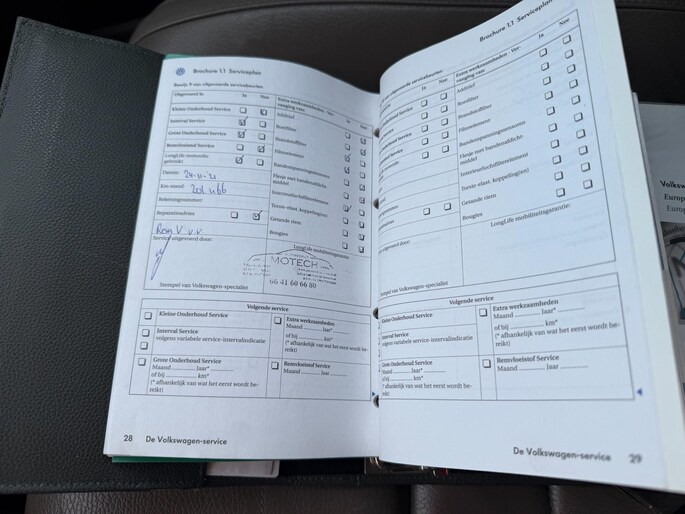 Brochure 1.1 Serviceplan
Bewijs 9 van uitgevoerde servicebeurten.
Uitgevoerd is: Ja Nee
Kleine Onderhoud Service
Interval Service
Grote Onderhoud Service
Remvloeistof Service
LongLife motorolie gebruikt
Datum:
Km-stand: 201.466
Rekeningnummer:
Reparatieadvies
Rem V v.v.
Service uitgevoerd door:
Extra werkzaamheden - Vervanging van: Ja Nee
Additief
Roetfilter
Brandstoffilter
Filterelement
Bandenspanningssensoren
Flesje met bandenafdichtmiddel
Interieurluchtfilterelement
Tussen-elast. koppeling(en)
Getande riem
Bougies
LongLife mobiliteitsgarantie:
MOTECH
06 41 60 66 80
Stempel van Volkswagen-specialist
Volgende service
Kleine Onderhoud Service
Interval Service
volgens variabele service-intervalindicatie
Grote Onderhoud Service
Maand ........ Jaar* ........
of bij ........ km*
(* afhankelijk van wat het eerst wordt bereikt)
Extra werkzaamheden
Maand ........ Jaar* ........
of bij ........ km*
(* afhankelijk van wat het eerst wordt bereikt)
Remvloeistof Service
Maand ........ Jaar ........
28 De Volkswagen-service
Brochure 1.1 Serviceplan
Ja Nee
Extra werkzaamheden - Vervanging van: Ja Nee
Additief
Roetfilter
Brandstoffilter
Filterelement
Bandenspanningssensoren
Flesje met bandenafdichtmiddel
Interieurluchtfilterelement
Tussen-elast. koppeling(en)
Getande riem
Bougies
LongLife mobiliteitsgarantie:
Stempel van Volkswagen-specialist
Volgende service
Kleine Onderhoud Service
Interval Service
volgens variabele service-intervalindicatie
Grote Onderhoud Service
Maand ........ Jaar* ........
of bij ........ km*
(* afhankelijk van wat het eerst wordt bereikt)
Extra werkzaamheden
Maand ........ Jaar* ........
of bij ........ km*
(* afhankelijk van wat het eerst wordt bereikt)
Remvloeistof Service
Maand ........ Jaar ........
De Volkswagen-service 29
Volkswagen
Europ
Europ